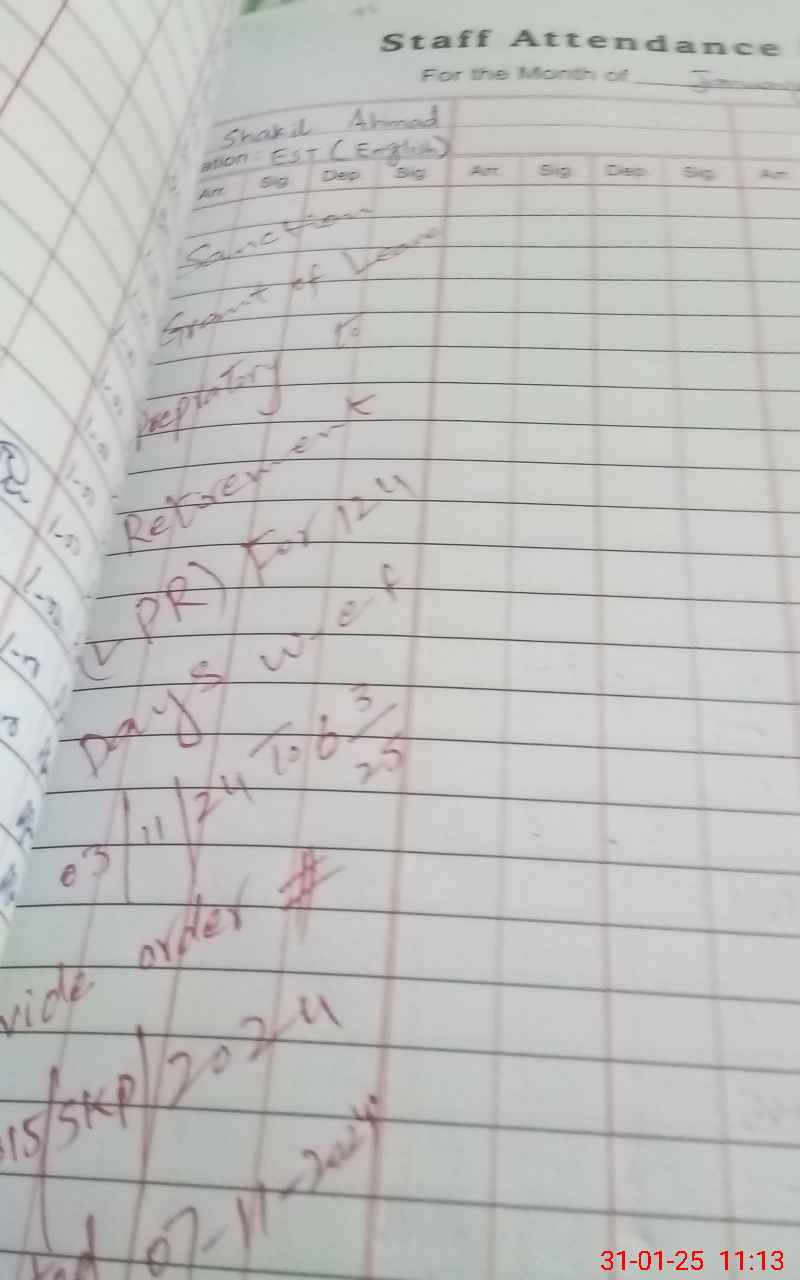 Staff Attendance
For the Month of January
Shakil Ahmad
ation: EST (English)
Arr. Sig. Dep. Sig. Arr. Sig. Dep. Sig. Arr.
Sanction
Grant of Leave
Prepratory to
Retirement
(LPR) For 124
Days w-e-f
03/11/24 To 6 3/25
vide order #
/SKP/2024
07-11-2024
31-01-25 11:13